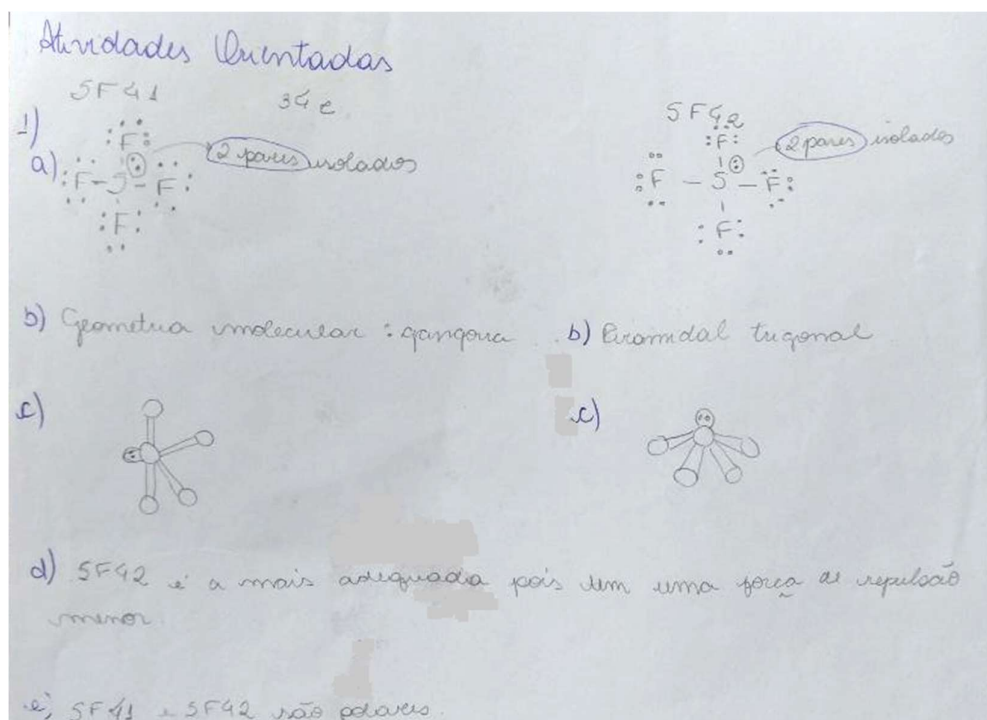 Atividades Orientadas
SF41 34 e SF42
1)
a) :F-S-F: 2 pares isolados :F-S-F: 2 pares isolados
F F
F F
b) Geometria molecular: gangorra b) Piramidal trigonal
c) c)
d) SF42 é a mais adequada pois tem uma força de repulsão
menor.
e) SF41 e SF42 são polares.